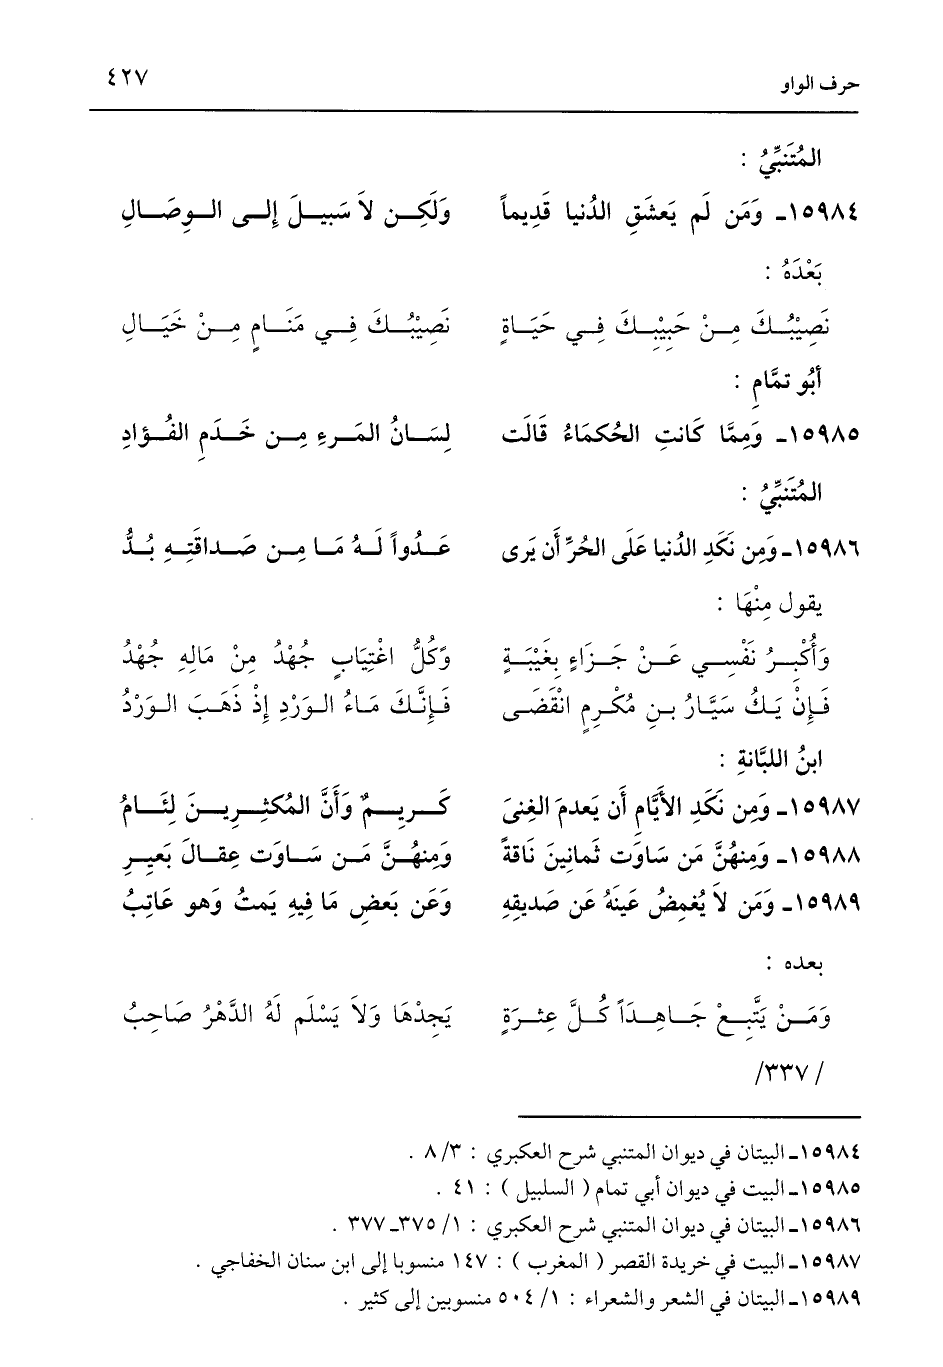 حرف الواو ٤٢٧
المُتَنَبِّيُّ :
١٥٩٨٤ـ وَمَن لَم يَعشَقِ الدُنيا قَديماً وَلَكِن لاَ سَبيلَ إِلى الوِصَالِ
بَعْدَهُ :
نَصِيْبُكَ مِنْ حَبِيْبِكَ فِي حَيَاةٍ نَصِيْبُكَ فِي مَنَامٍ مِنْ خَيَالِ
أَبُو تمَّامٍ :
١٥٩٨٥ـ وَمِمَّا كَانَتِ الحُكمَاءُ قَالَت لِسَانُ المَرءِ مِن خَدَمِ الفُؤادِ
المُتَنَبِّيُّ :
١٥٩٨٦ـ وَمِن نَكَدِ الدُنيا عَلَى الحُرِّ أَن يَرى عَدُواً لَهُ مَا مِن صَداقَتِهِ بُدُّ
يقول مِنْهَا :
وَأُكْبِرُ نَفْسِي عَنْ جَزَاءٍ بِغَيْبَةٍ وَكُلُّ اغْتِيَابٍ جُهْدُ مِنْ مَالِهِ جُهْدُ
فَإِنْ يَكُ سَيَّارُ بنِ مُكْرِمٍ انْقَضَى فَإِنَّكَ مَاءُ الوَرْدِ إِذْ ذَهَبَ الوَرْدُ
ابنُ اللبَّانَةِ :
١٥٩٨٧ـ وَمِن نَكَدِ الأَيَّامِ أَن يَعدمَ الغِنَى كَرِيمٌ وَأَنَّ المُكثِرِينَ لِئَامُ
١٥٩٨٨ـ وَمِنهُنَّ مَن سَاوَت ثَمانِينَ نَاقةً وَمِنهُنَّ مَن سَاوَت عِقالَ بَعيرِ
١٥٩٨٩ـ وَمَن لاَ يُغمِضُ عَينَهُ عَن صَديقِهِ وَعَن بَعضِ مَا فِيهِ يَمتُ وَهو عَاتِبُ
بعده :
وَمَنْ يَتَّبِعْ جَاهِدَاً كُلَّ عِثرَةٍ يَجِدْهَا وَلاَ يَسْلَم لَهُ الدَّهْرُ صَاحِبُ
/ ٣٣٧/
١٥٩٨٤ـ البيتان في ديوان المتنبي شرح العكبري : ٣/ ٨ .
١٥٩٨٥ـ البيت في ديوان أبي تمام ( السلبيل ) : ٤١ .
١٥٩٨٦ـ البيتان في ديوان المتنبي شرح العكبري : ١/ ٣٧٥ـ ٣٧٧ .
١٥٩٨٧ـ البيت في خريدة القصر ( المغرب ) : ١٤٧ منسوبا إلى ابن سنان الخفاجي .
١٥٩٨٩ـ البيتان في الشعر والشعراء : ١/ ٥٠٤ منسوبين إلى كثير .